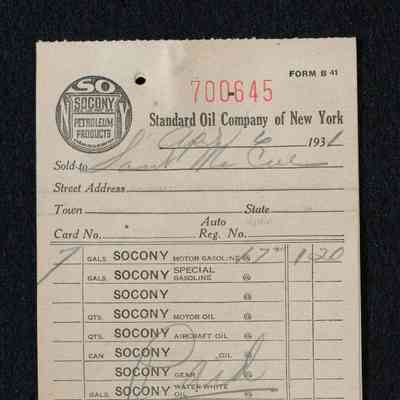 FORM B 41
700645
SO
SOCONY
PETROLEUM
PRODUCTS
N Y
Standard Oil Company of New York
Apr 6 1931
Sold to
Street Address
Town State
Card No. Auto Reg. No.
7 GALS. SOCONY MOTOR GASOLINE @ 17 1 20
GALS. SOCONY SPECIAL GASOLINE @
SOCONY @
QTS. SOCONY MOTOR OIL @
QTS. SOCONY AIRCRAFT OIL @
CAN SOCONY OIL @
SOCONY GEAR @
GALS. SOCONY WATER WHITE OIL @
Paid